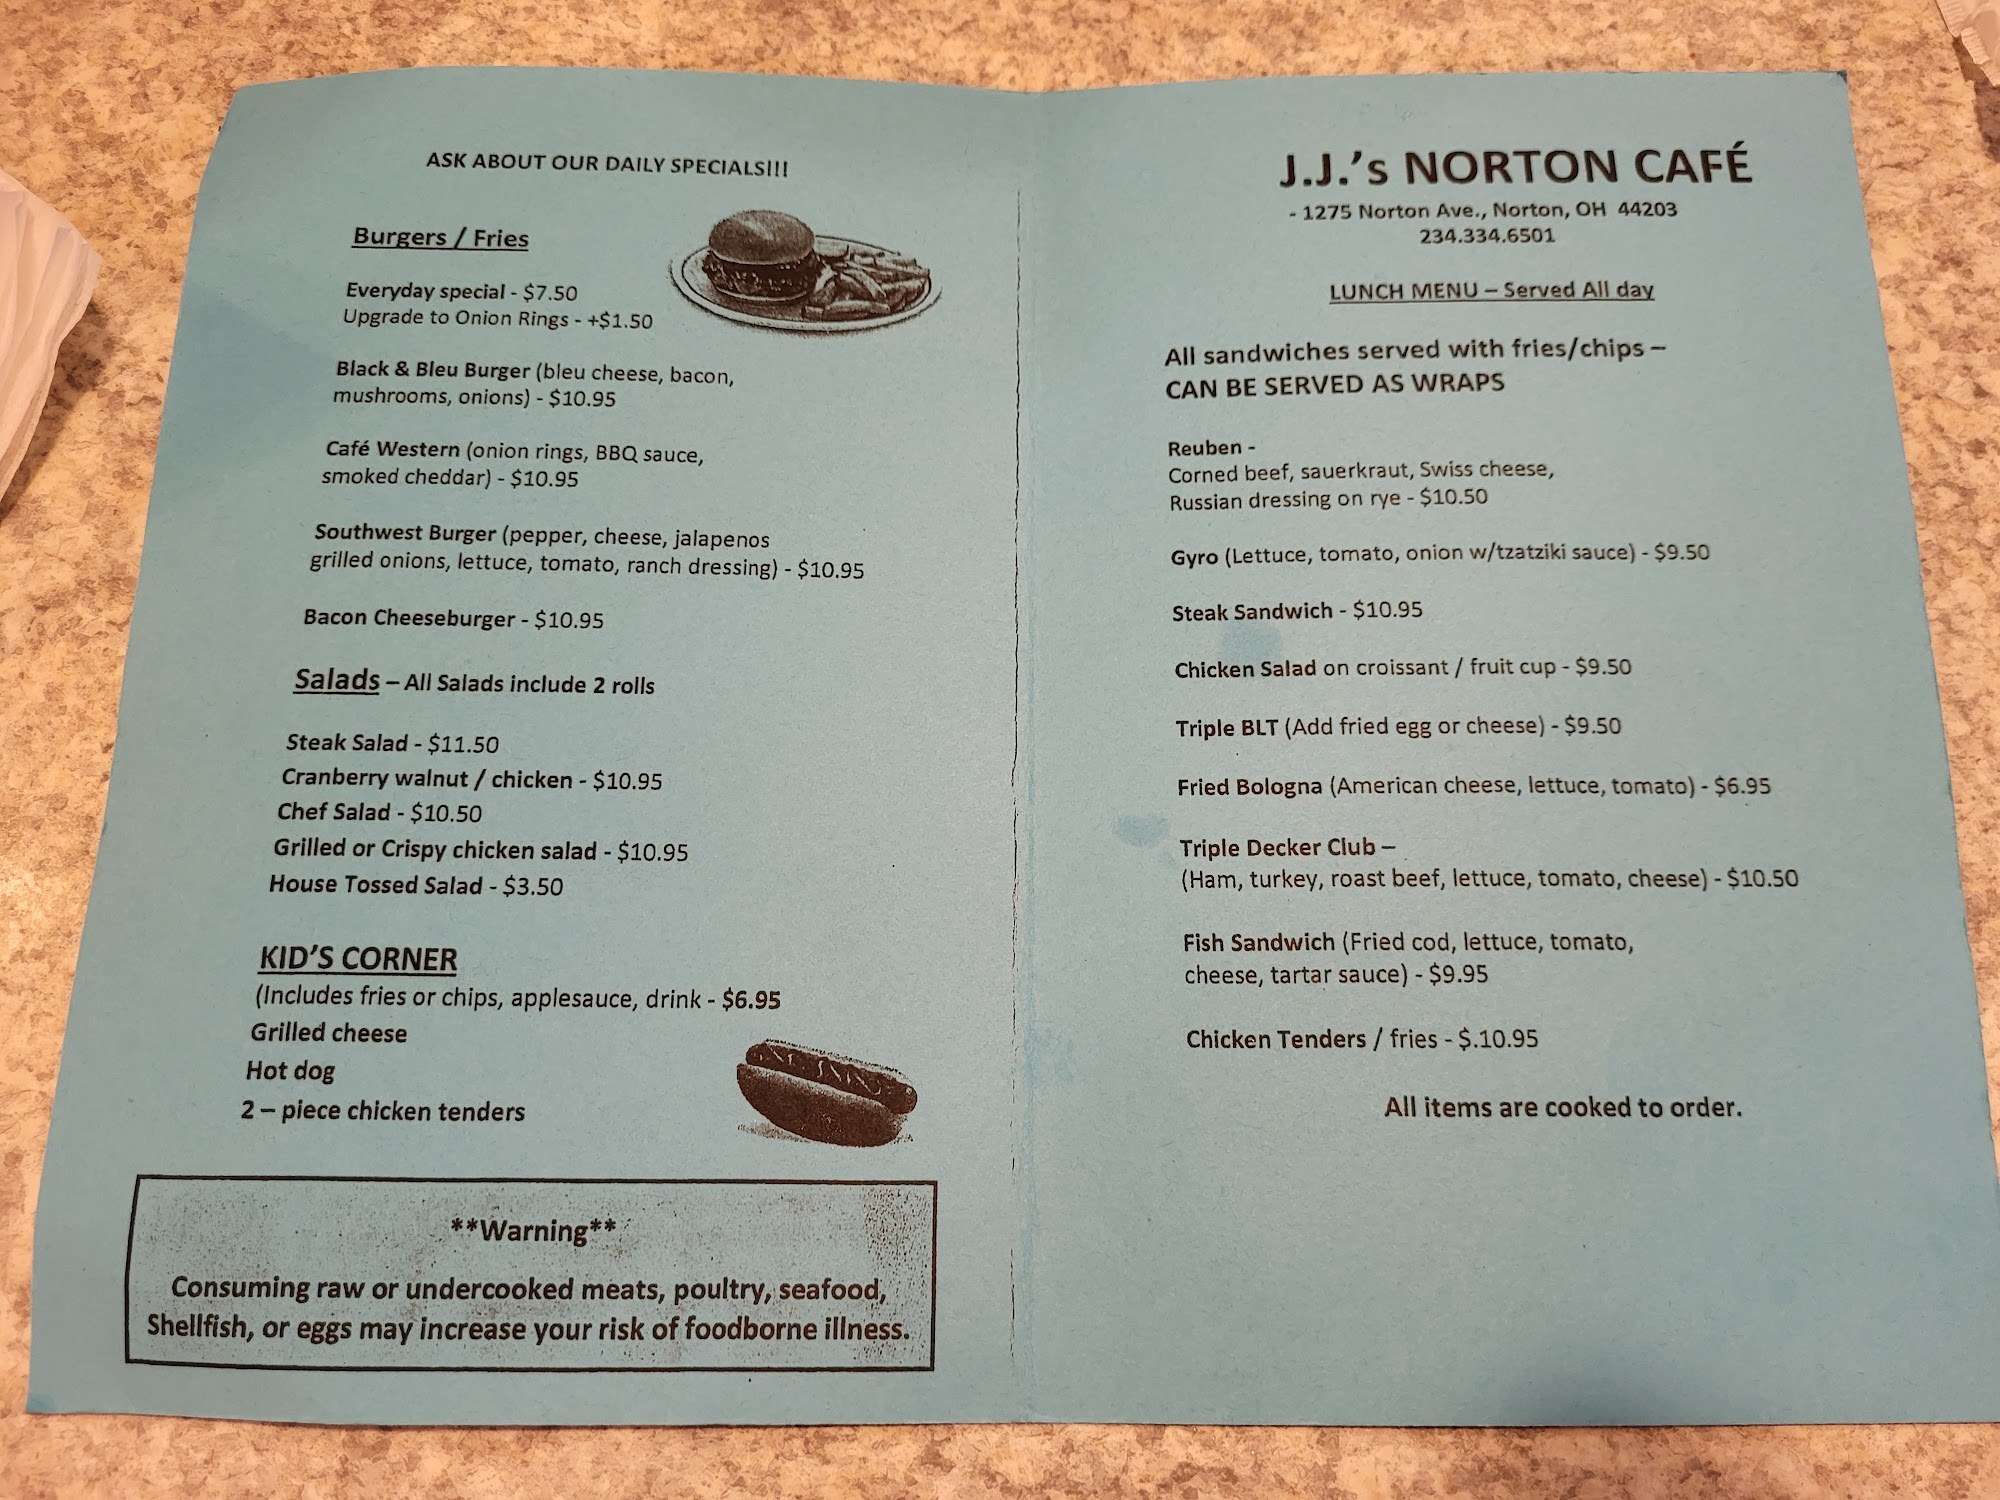 ASK ABOUT OUR DAILY SPECIALS!!!
Burgers / Fries
Everyday special - $7.50
Upgrade to Onion Rings - +$1.50
Black & Bleu Burger (bleu cheese, bacon,
mushrooms, onions) - $10.95
Café Western (onion rings, BBQ sauce,
smoked cheddar) - $10.95
Southwest Burger (pepper, cheese, jalapenos
grilled onions, lettuce, tomato, ranch dressing) - $10.95
Bacon Cheeseburger - $10.95
Salads – All Salads include 2 rolls
Steak Salad - $11.50
Cranberry walnut / chicken - $10.95
Chef Salad - $10.50
Grilled or Crispy chicken salad - $10.95
House Tossed Salad - $3.50
KID'S CORNER
(Includes fries or chips, applesauce, drink - $6.95
Grilled cheese
Hot dog
2 – piece chicken tenders
**Warning**
Consuming raw or undercooked meats, poultry, seafood,
Shellfish, or eggs may increase your risk of foodborne illness.
J.J.'s NORTON CAFÉ
- 1275 Norton Ave., Norton, OH 44203
234.334.6501
LUNCH MENU – Served All day
All sandwiches served with fries/chips –
CAN BE SERVED AS WRAPS
Reuben -
Corned beef, sauerkraut, Swiss cheese,
Russian dressing on rye - $10.50
Gyro (Lettuce, tomato, onion w/tzatziki sauce) - $9.50
Steak Sandwich - $10.95
Chicken Salad on croissant / fruit cup - $9.50
Triple BLT (Add fried egg or cheese) - $9.50
Fried Bologna (American cheese, lettuce, tomato) - $6.95
Triple Decker Club –
(Ham, turkey, roast beef, lettuce, tomato, cheese) - $10.50
Fish Sandwich (Fried cod, lettuce, tomato,
cheese, tartar sauce) - $9.95
Chicken Tenders / fries - $.10.95
All items are cooked to order.